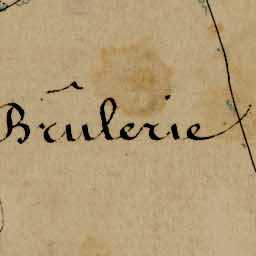 Brûlerie